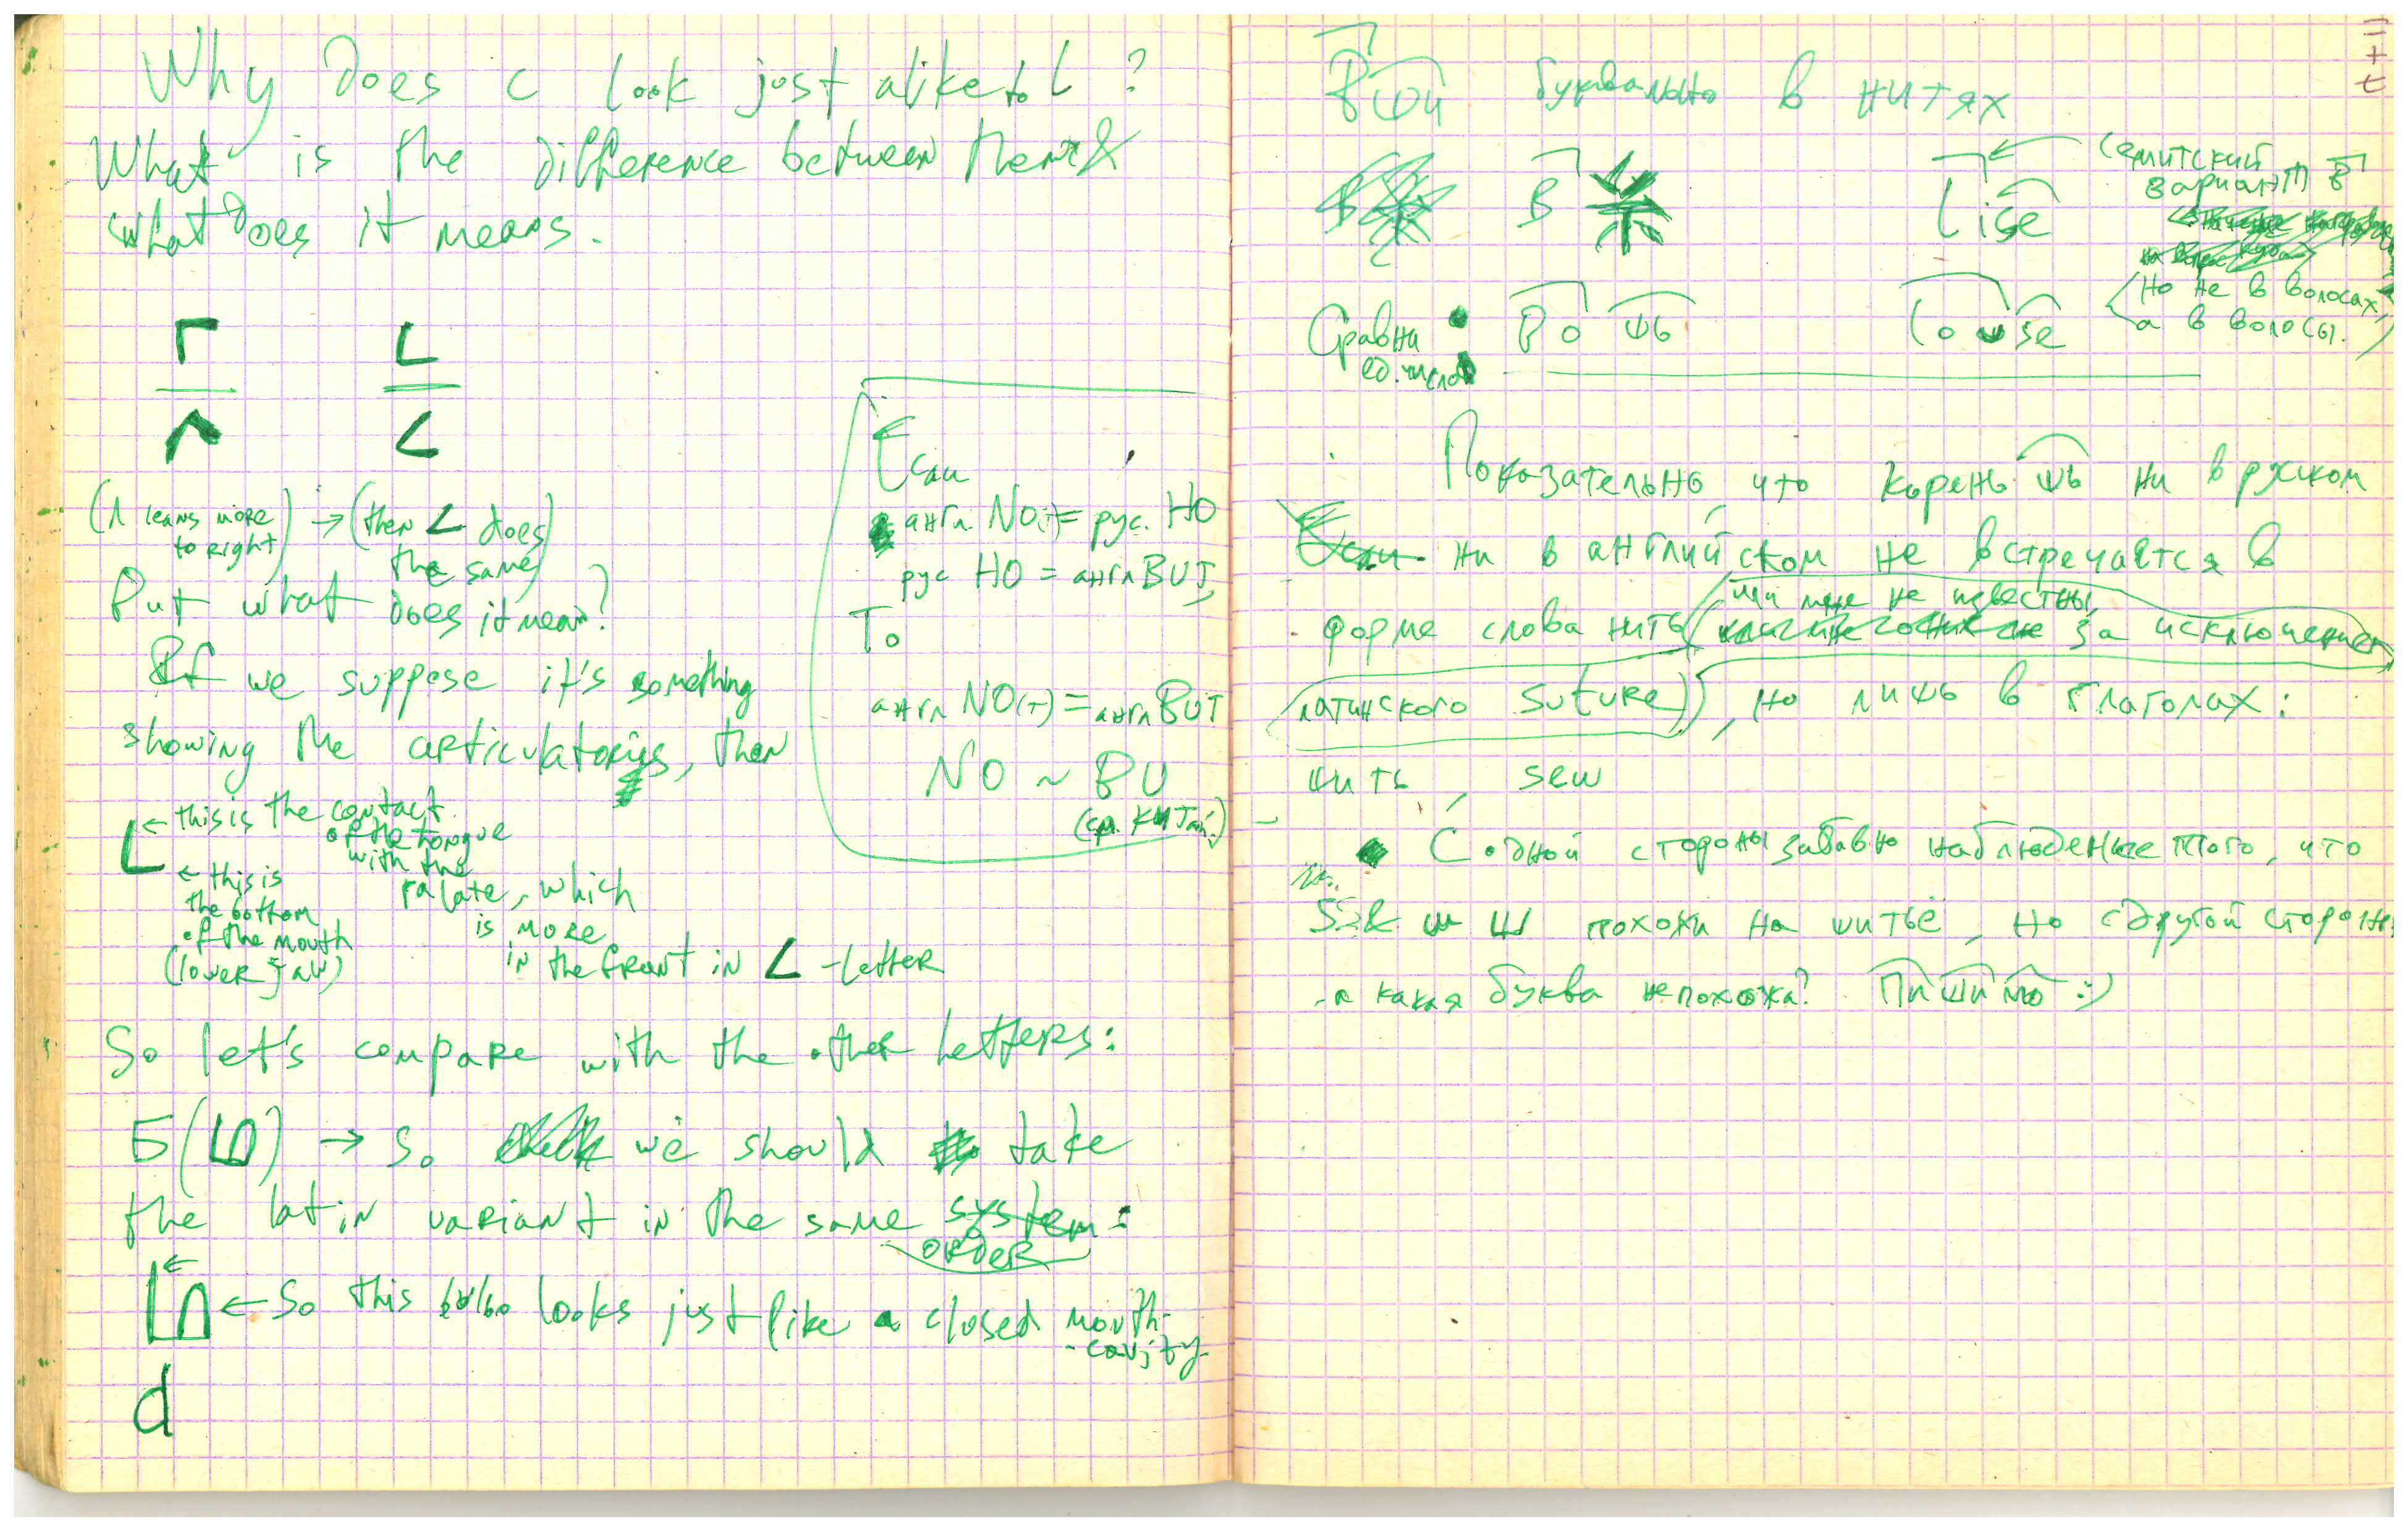 Why does c look just alike to L ?
What is the difference between them &
what does it means.
Г L
Л <
(Л leans more to right) → (then < does the same)
But what does it mean?
If we suppose it's something
showing the articulatories, then
L ← this is the contact
of the tongue
with the
palate, which
is more
in the front in < -letter
← this is
the bottom
of the mouth
(lower jaw)
So let's compare with the other letters:
Б ( ) → So we should take
the latin variant in the same system :
order
← So this looks just like a closed mouth-
-cavity
d
Если
англ. NO(т) = рус. НО
рус НО = англ BUT,
То
англ NO(т) = англ BUT
NO ~ BU
(ср. китай.)
Вши буквально в нитях
В
Lise
семитский
вариант В
Но не в волосах,
а в волосы.
Сравни
ед. число
Вошь Louse
Показательно, что корень шь ни в руском
ни в английском не встречается в
форме слова нить (или мне не известны, за исключением
латинского suture), но лишь в глаголах:
шить, sew
С одной стороны забавно наблюдение того, что
S & ш Ш похожи на шитьё, но с другой стороны
- а какая буква не похожа? Пишимо :)